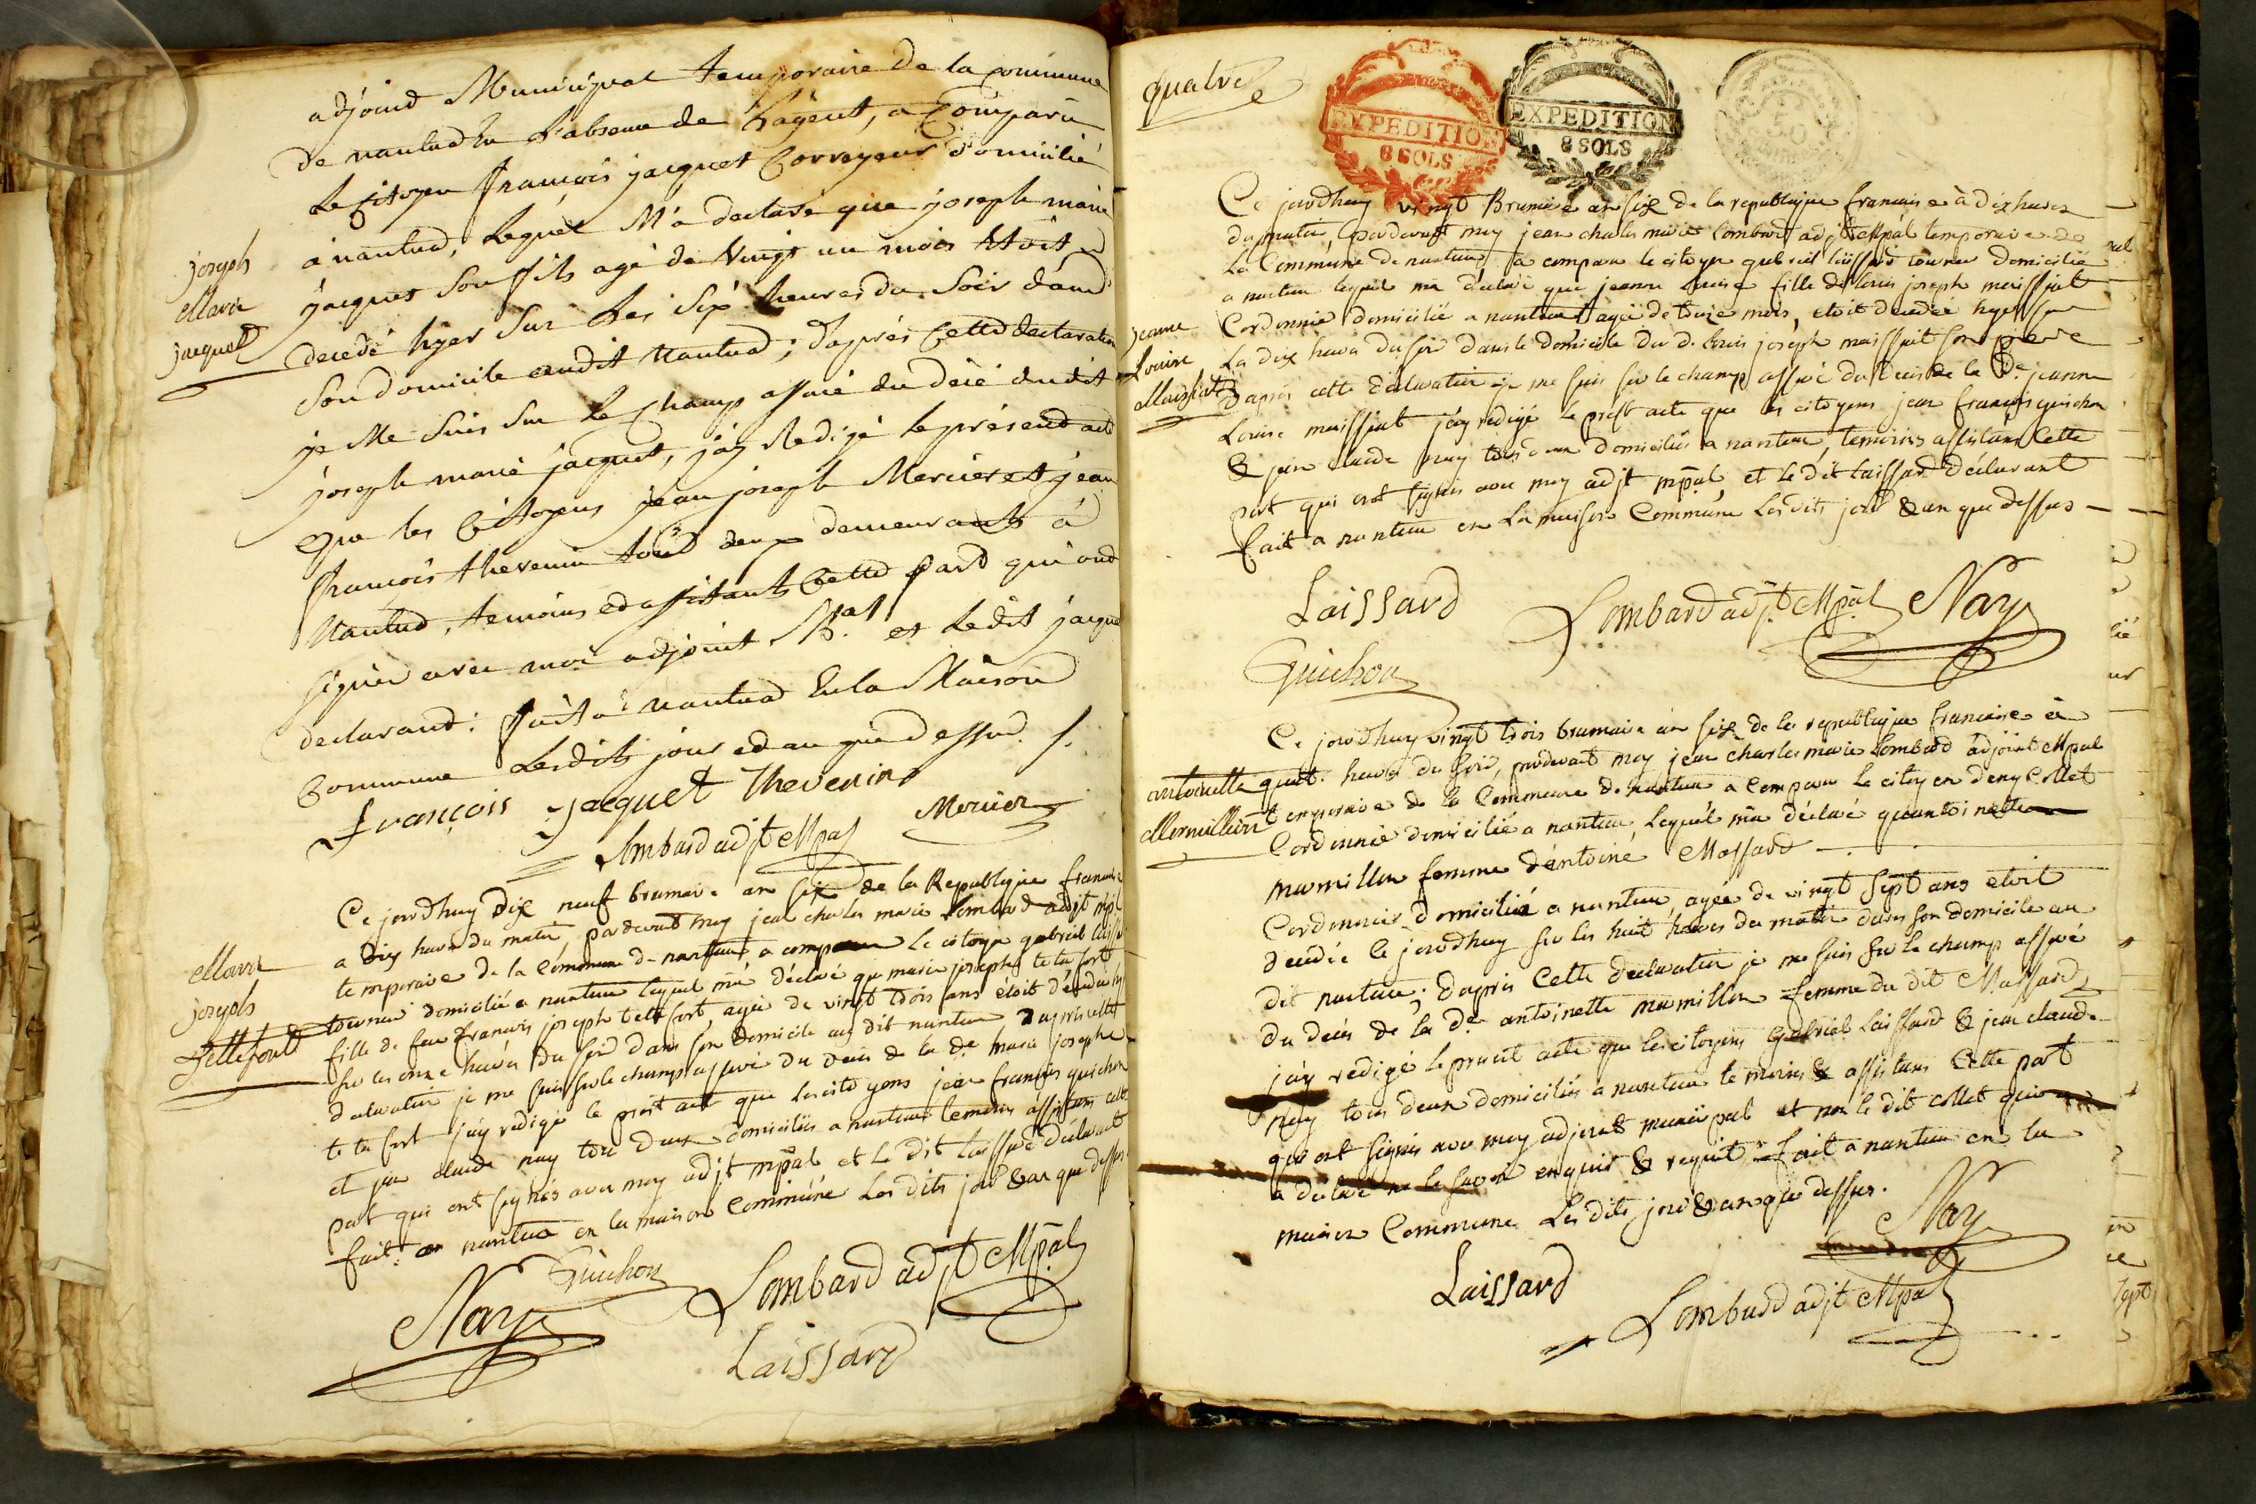 adjoind Municipal temporaire de la commune
de nantua En L'absence de L'agent, a Comparu
Le Citoyen François jacquet Corroyeur domicilié
a nantua, Lequel M'a declaré que joseph marie
joseph
Marie
jacquet
jacquet Son fils agé de vingt un mois Etoit
decedé hyer Sur Les Six heures du Soir dans
Son domicile audit nantua; d'après Cette declaration
je Me Suis Sur Le Champ assuré du décé dudit
joseph marie jacquet, j'ay Redigé le présent acte
Que les Citoyens jean joseph Mercier et jean
François thevenin tous deux demeurants à
Nantua, temoins et assistants Cette part qui ont
signé avec moi adjoint M.al et Ledit jacquet
declarant. fait a nantua En la Maison
Commune Lesdits jour et an que dessus ./.
François jacquet Thevenin
Lombard adjt Mpal Mercier
Ce jourdhuy dix neuf brumaire an six de la Republique francaise
a dix heures du matin, pardevant moy jean charles marie Lombard adjt mpal
temporaire de la Commune de nantua a comparu le citoyen gabriel laissard
Marie
joseph
Tettefort
tourneur domicilié a nantua lequel m'a déclaré que marie josephe tettefort
fille de feu francois joseph tettefort agée de vingt trois ans étoit décédée hyer
sur les onze heures du soir dans son domicile au dit nantua d'après cette
declaration je me suis sur le champ assuré du decès de la de marie josephe
tettefort j'ay rédigé le présent acte que les citoyens jean francois guichon
et jean claude nay tous deux domiciliés a nantua temoins assistans cette
part qui ont signés avec moy adjt mpal et le dit laissard déclarant
fait a nantua en la maison Commune Les dits jour & an que dessus
Guichon
Nay Lombard adjt Mpal
Laissard
quatre
EXPEDITION
8 SOLS
EXPEDITION
8 SOLS
50
Ce jourdhuy vingt Brumaire an six de la republique francaise à dix heures
du matin, pardevant moy jean charles marie Lombard adjt Mpal temporaire de
La Commune de nantua a comparu le citoyen gabriel laissard tourneur domicilié
a nantua lequel m'a déclaré que jeanne Louise fille de Louis joseph maissiat
jeanne
Louise
Maissiat
Cordonnier domicilié a nantua agée de treize mois, etoit décédée hyer sur
Les dix heures du soir dans le domicile du d. Louis joseph maissiat son père
D'après cette déclaration je me suis sur le champ assuré du decès de la de jeanne
Louise maissiat j'ay rédigé le prest acte que les citoyens jean françois guichon
& jean claude nay tous deux domiciliés a nantua, temoins assistans Cette
part qui ont signés avec moy adjt mpal, et le dit laissard déclarant
fait a nantua en la maison Commune Les dits jour & an que dessus
Laissard Lombard adjt Mpal Nay
Guichon
Ce jourdhuy vingt trois brumaire an six de la republique francaise à
quatre heures du soir, pardevant moy jean charles marie Lombard adjoint Mpal
antoinette
Mermillon
temporaire de la Commune de nantua a comparu le citoyen deny Collet
Cordonnier domicilié a nantua, Lequel m'a déclaré quantoinette
marmillon femme d'entoine Massard
Cordonnier domicilié a nantua, agée de vingt sept ans etoit
décédée le jourdhuy sur les huit heures du matin dans son domicile au
dit nantua. D'après Cette declaration je me suis sur le champ assuré
du decès de la de antoinette marmillon femme du dit Massard
j'ay rédigé le present acte que les citoyens Gabriel Laissard & jean claude
nay tous deux domiciliés a nantua temoins & assistans Cette part
qui ont signés avec moy adjoint municipal et non le dit collet qui
a declaré ne le savoir enquis & requit. fait a nantua en la
maison Commune Les dits jour & an que dessus.
Nay
Laissard
Lombard adjt Mpal